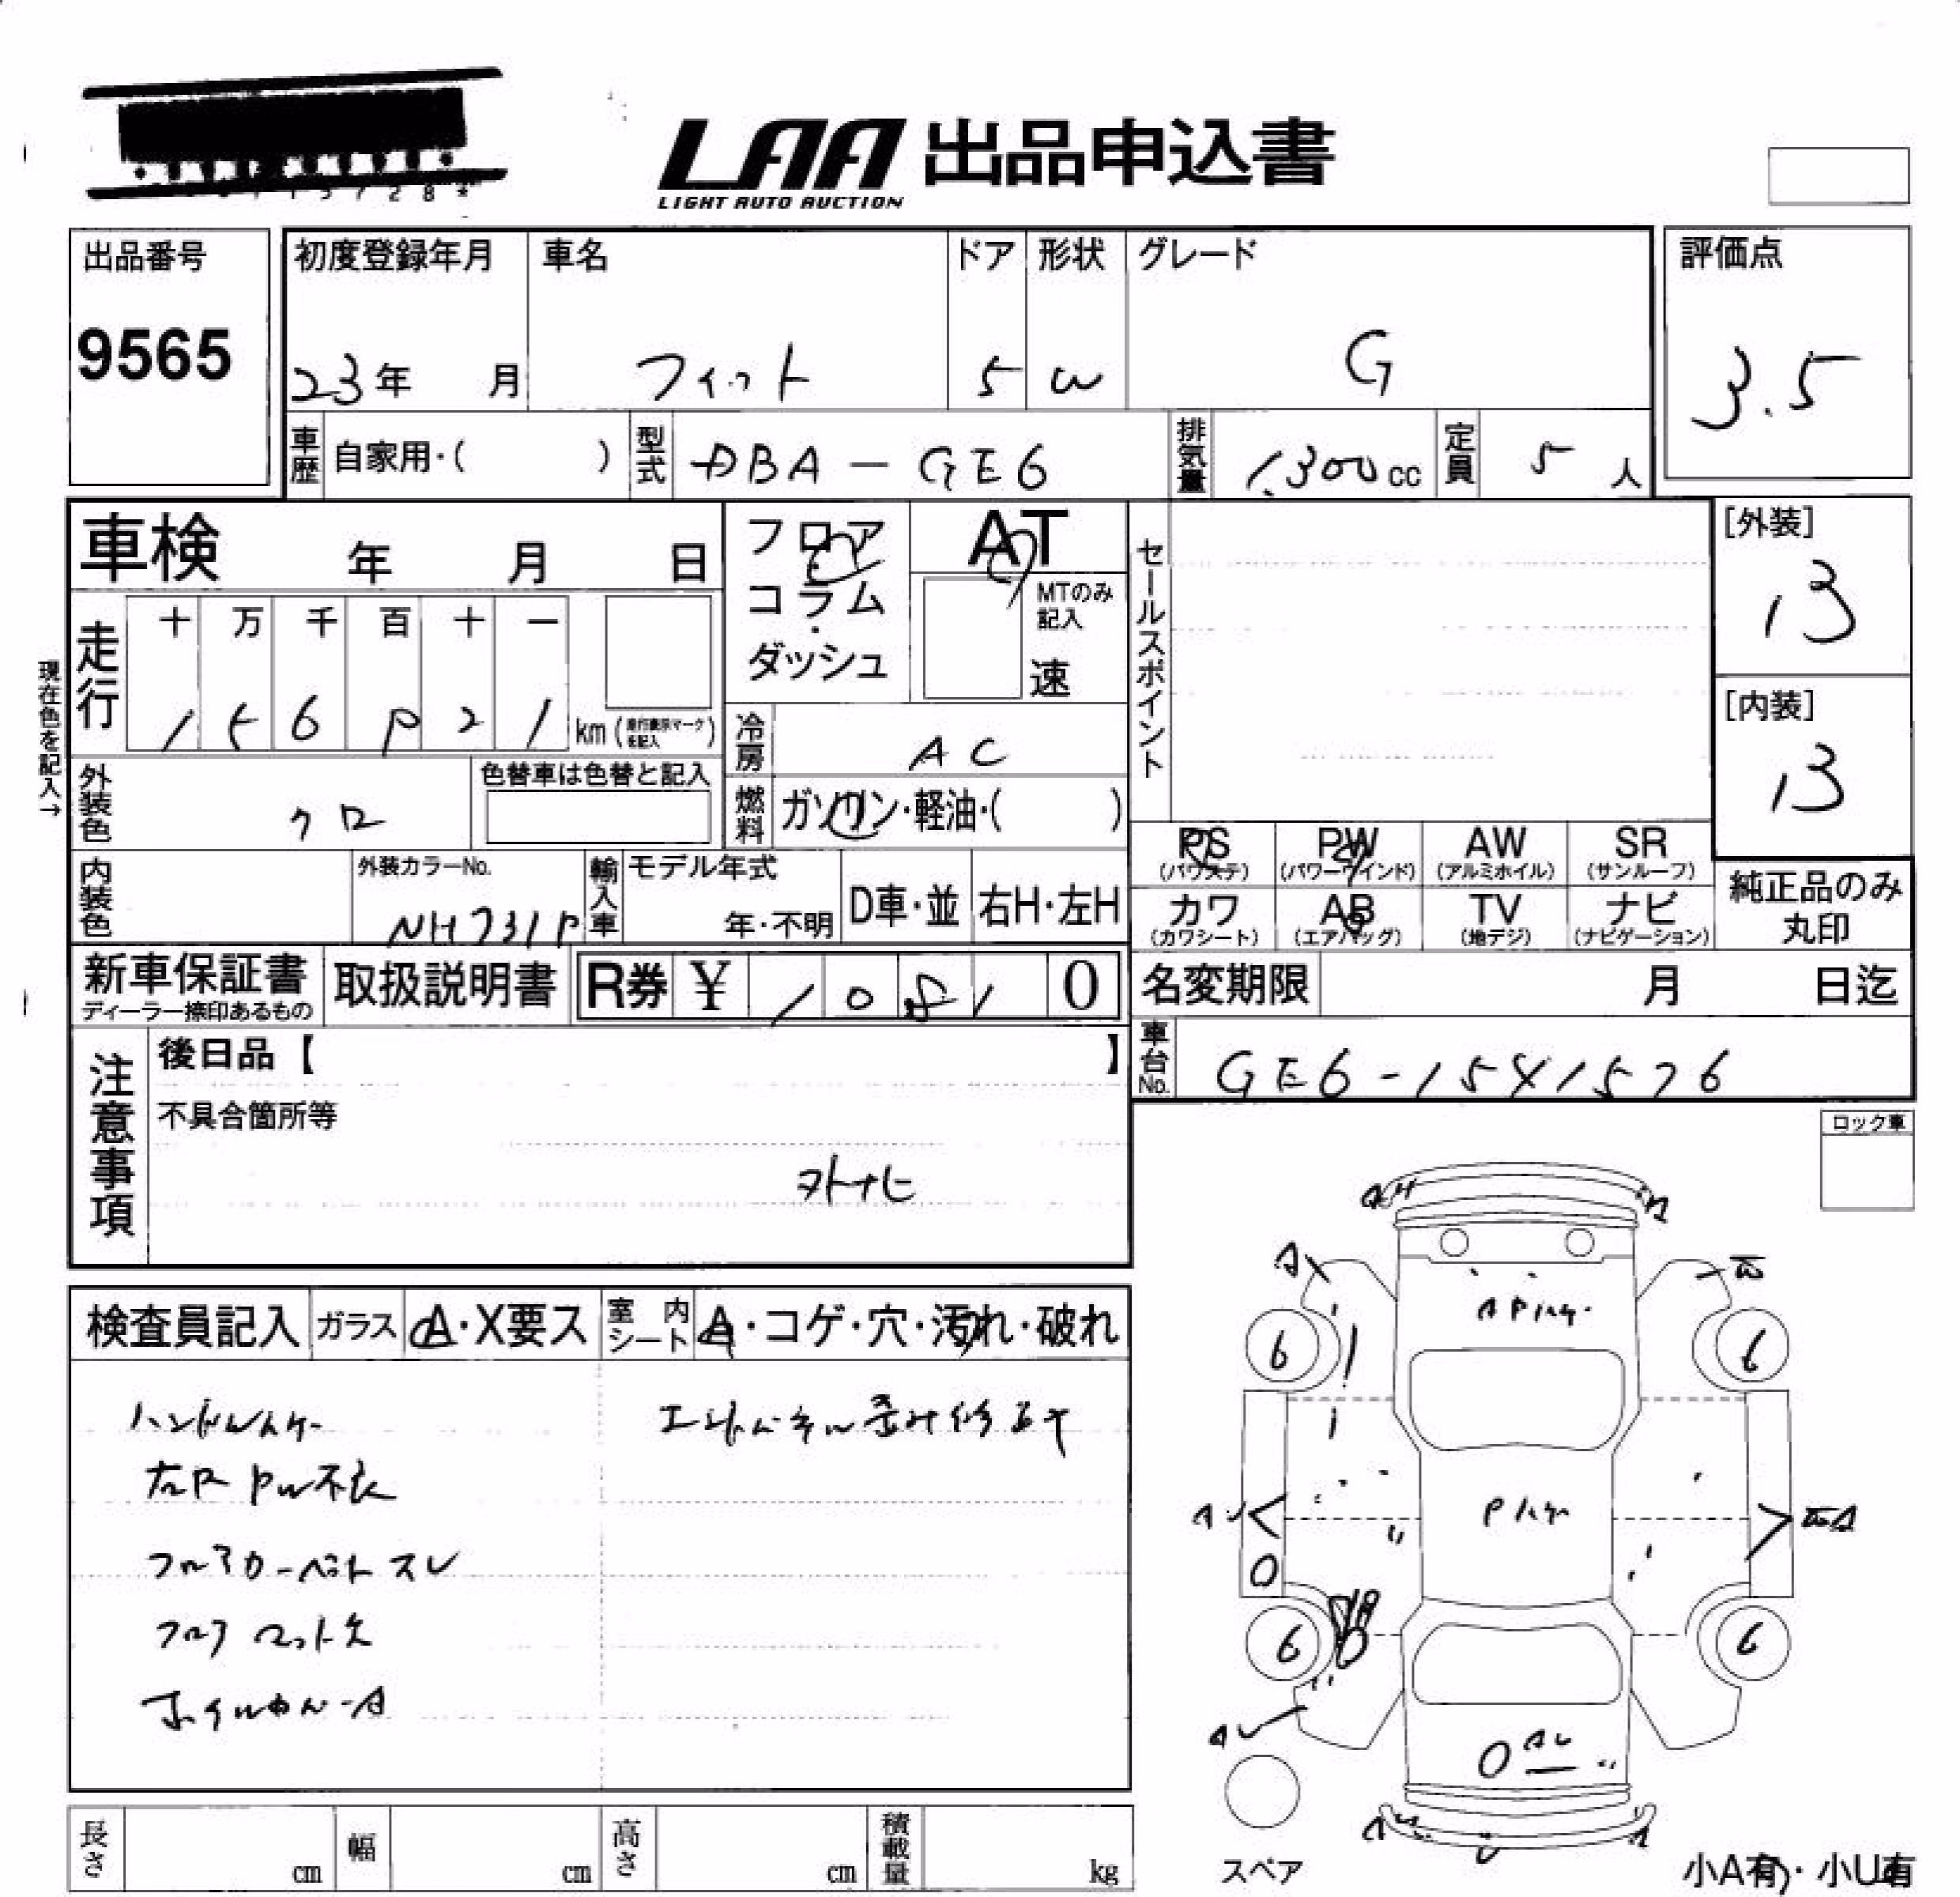 LAA 出品申込書
LIGHT AUTO AUCTION
出品番号
9565
初度登録年月
23年 月
車名
フィット
ドア
5
形状
W
グレード
G
評価点
3.5
車歴 自家用・( )
型式 DBA-GE6
排気量 1,300cc
定員 5人
車検 年 月 日
フロア・コラム・ダッシュ
AT
MTのみ記入
速
セールスポイント
[外装]
13
[内装]
13
現在色を記入→
走行
十 万 千 百 十 一
1 5 6 21 km(走行表示マークを記入)
冷房 AC
外装色 クロ
色替車は色替と記入
燃料 ガソリン・軽油・( )
PS
(パワステ)
PW
(パワーウインド)
AW
(アルミホイル)
SR
(サンルーフ)
カワ
(カワシート)
AB
(エアバッグ)
TV
(地デジ)
ナビ
(ナビゲーション)
純正品のみ
丸印
内装色
外装カラーNo.
NH731P
輸入車
モデル年式
年・不明
D車・並
右H・左H
新車保証書
ディーラー捺印あるもの
取扱説明書
R券 ¥ 10810
名変期限 月 日迄
車台No. GE6-1541576
注意事項
後日品【 】
不具合箇所等
外ナビ
ロック車
検査員記入
ガラス A・X要ス
室内シート A・コゲ・穴・汚れ・破れ
ハンドルハゲ
左R PW不良
フロアカーペットスレ
フロアマット欠
ホイルカバーA
エンドパネル歪み修正ヤ
A
A
6
6
6
6
スペア
長さ cm
幅 cm
高さ cm
積載量 kg
小A有・小U有